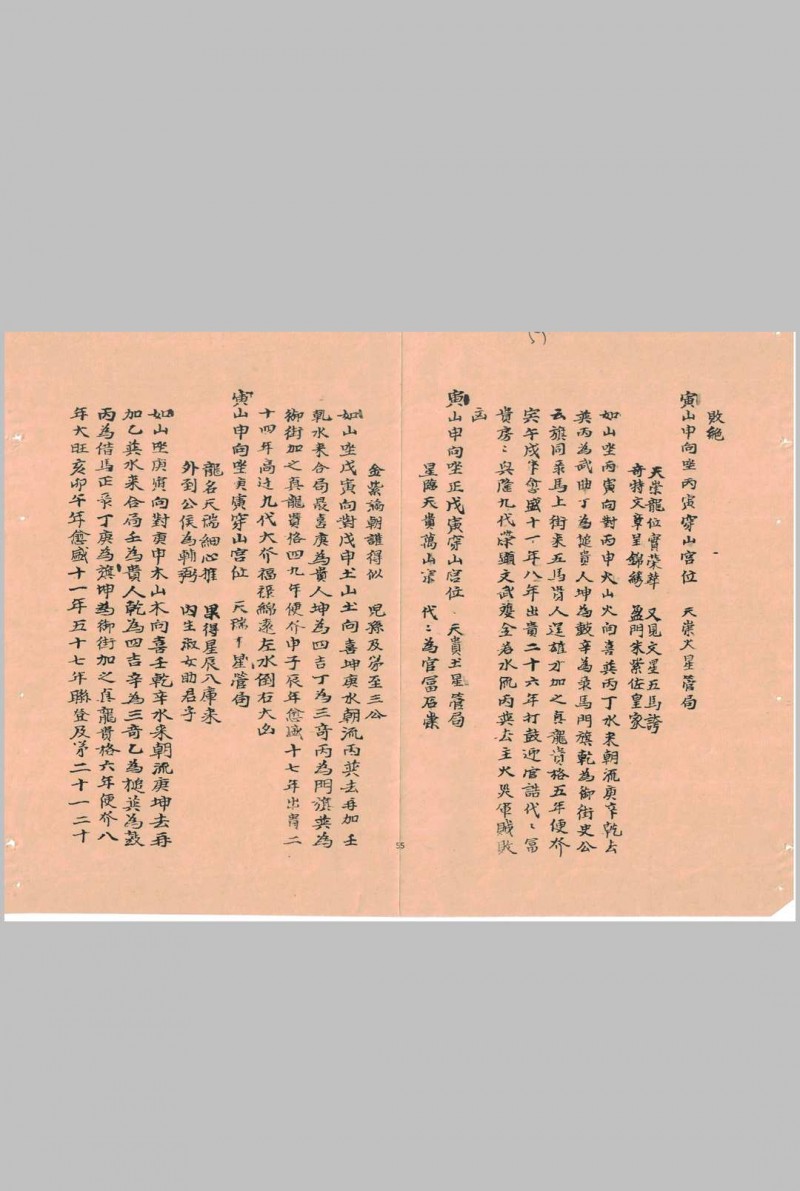 敗絕
寅山申向坐丙寅穿山宮位 天崇火星管局
天崇龍位實榮華 又見文星五馬誇
奇特文章呈錦繡 盈門朱紫佐皇家
如山坐丙寅向對丙申火山火向喜巽丙丁水来朝流庚辛乾去
巽丙為武曲丁為槌貴人坤為鼓辛為乘馬門旗乾為御街史公
云旗同乘馬上街来五馬貴人逞雄才加之真龍貴格五年便發
寅午戌年愈盛十一年八年出貴二十六年打鼓迎官誥代〻富
貴房〻興隆九代榮顯文武雙全若水流丙巽去主火災軍賊敗
凶
寅山申向坐正戊寅穿山宮位 天貴土星管局
星臨天貴萬山宗 代〻為官富石崇
金紫滿朝誰得似 兒孫及第至三公
如山坐戊寅向對戊申土山土向喜坤庚水朝流丙巽去再加壬
乾水来合局最喜庚為貴人坤為四吉丁為三奇丙為門旗巽為
御街加之真龍貴格四九年便發申子辰年愈盛十七年出貴二
十四年高迁九代大發福祿綿遠左水倒右大凶
寅山申向坐庚寅穿山宮位 天瑞木星管局
龍名天瑞細心推 果得星辰八庫来
外到公侯為輔弼 內生淑女助君子
如山坐庚寅向對庚申木山木向喜壬乾辛水来朝流庚坤去再
加乙巽水来合局壬為貴人乾為四吉辛為三奇乙為槌巽為鼓
丙為借馬正乘丁庚為旗坤為御街加之真龍貴格六年便發八
年大旺亥卯午年愈盛十一年五十七年聯登及第二十一二十
55